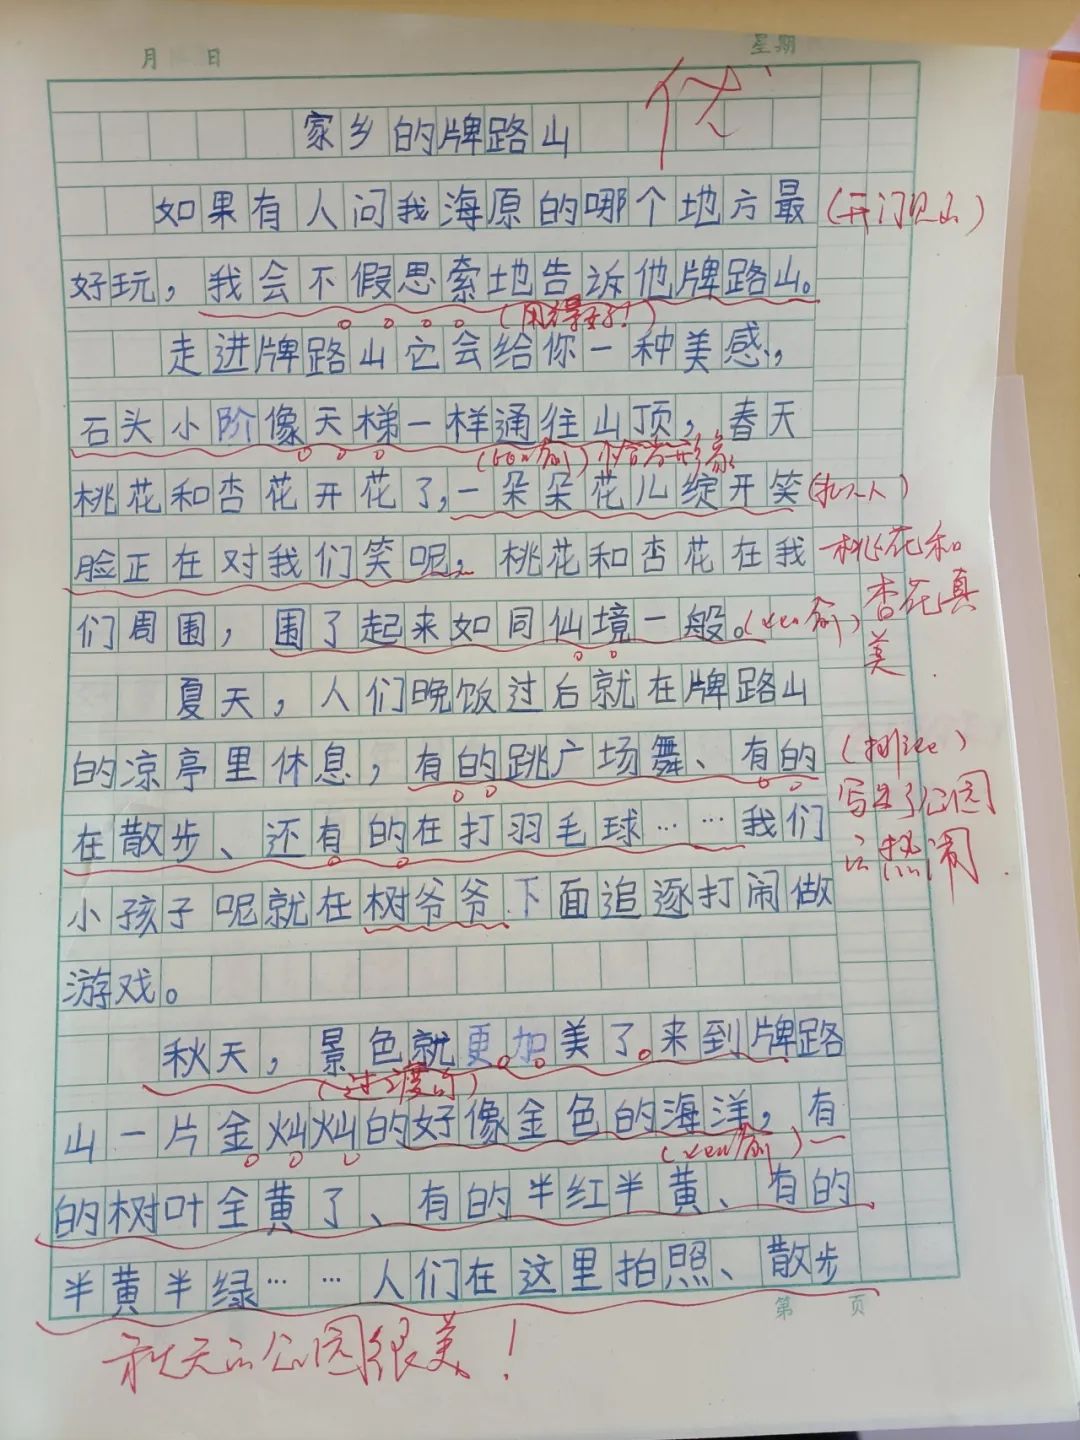 月 日 星期
优
家乡的牌路山
如果有人问我海原的哪个地方最
(开门见山)
好玩，我会不假思索地告诉他牌路山。
(用得好！)
走进牌路山它会给你一种美感，
石头小阶像天梯一样通往山顶，春天
(比喻)恰当形象
桃花和杏花开花了，一朵朵花儿绽开笑
(拟人)
脸正在对我们笑呢，桃花和杏花在我
桃花和
杏花真
美
们周围，围了起来如同仙境一般。
(比喻)
夏天，人们晚饭过后就在牌路山
的凉亭里休息，有的跳广场舞、有的
(排比)
写出了公园
的热闹
在散步、还有的在打羽毛球……我们
小孩子呢就在树爷爷下面追逐打闹做
游戏。
秋天，景色就更加美了。来到牌路
(过渡句)
山一片金灿灿的好像金色的海洋，有
(比喻)
的树叶全黄了、有的半红半黄、有的
半黄半绿……人们在这里拍照、散步
第 页
秋天的公园很美！